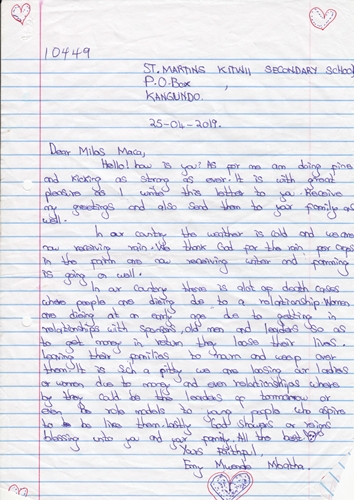 10449
ST. MARTINS KITWII SECONDARY SCHOOL
P.O. Box ,
KANGUNDO.
25-04-2019.
Dear Milos Maca,
Hello! how is you? As for me am doing fine
and kicking as strong as ever. It is with great
pleasure as I write this letter to you. Receive
my greetings and also send them to your family as
well.
In our cantry the weather is cold and we are
now receiving rain. We thank God for the rain per crops
in the farm are now receiving water and farming
is going on well.
In our cantry there is alot of death cases
where people are dieing due to a relationship. Women
are dieing at an early age due to getting in
relationships with sponsers, old men and leaders so as
to get money in return they loose their lives.
Leaving their families to mourn and weep over
them. It is such a pitty we are loosing our ladies
or women due to money and even relationships where
by they could be the leaders of tomorrow or
even be role models to young people who aspire
to be like them. lastly God shower or reigns
blessing unto you and your family. All the best
Yours Faithful,
Mwende Mbatha.